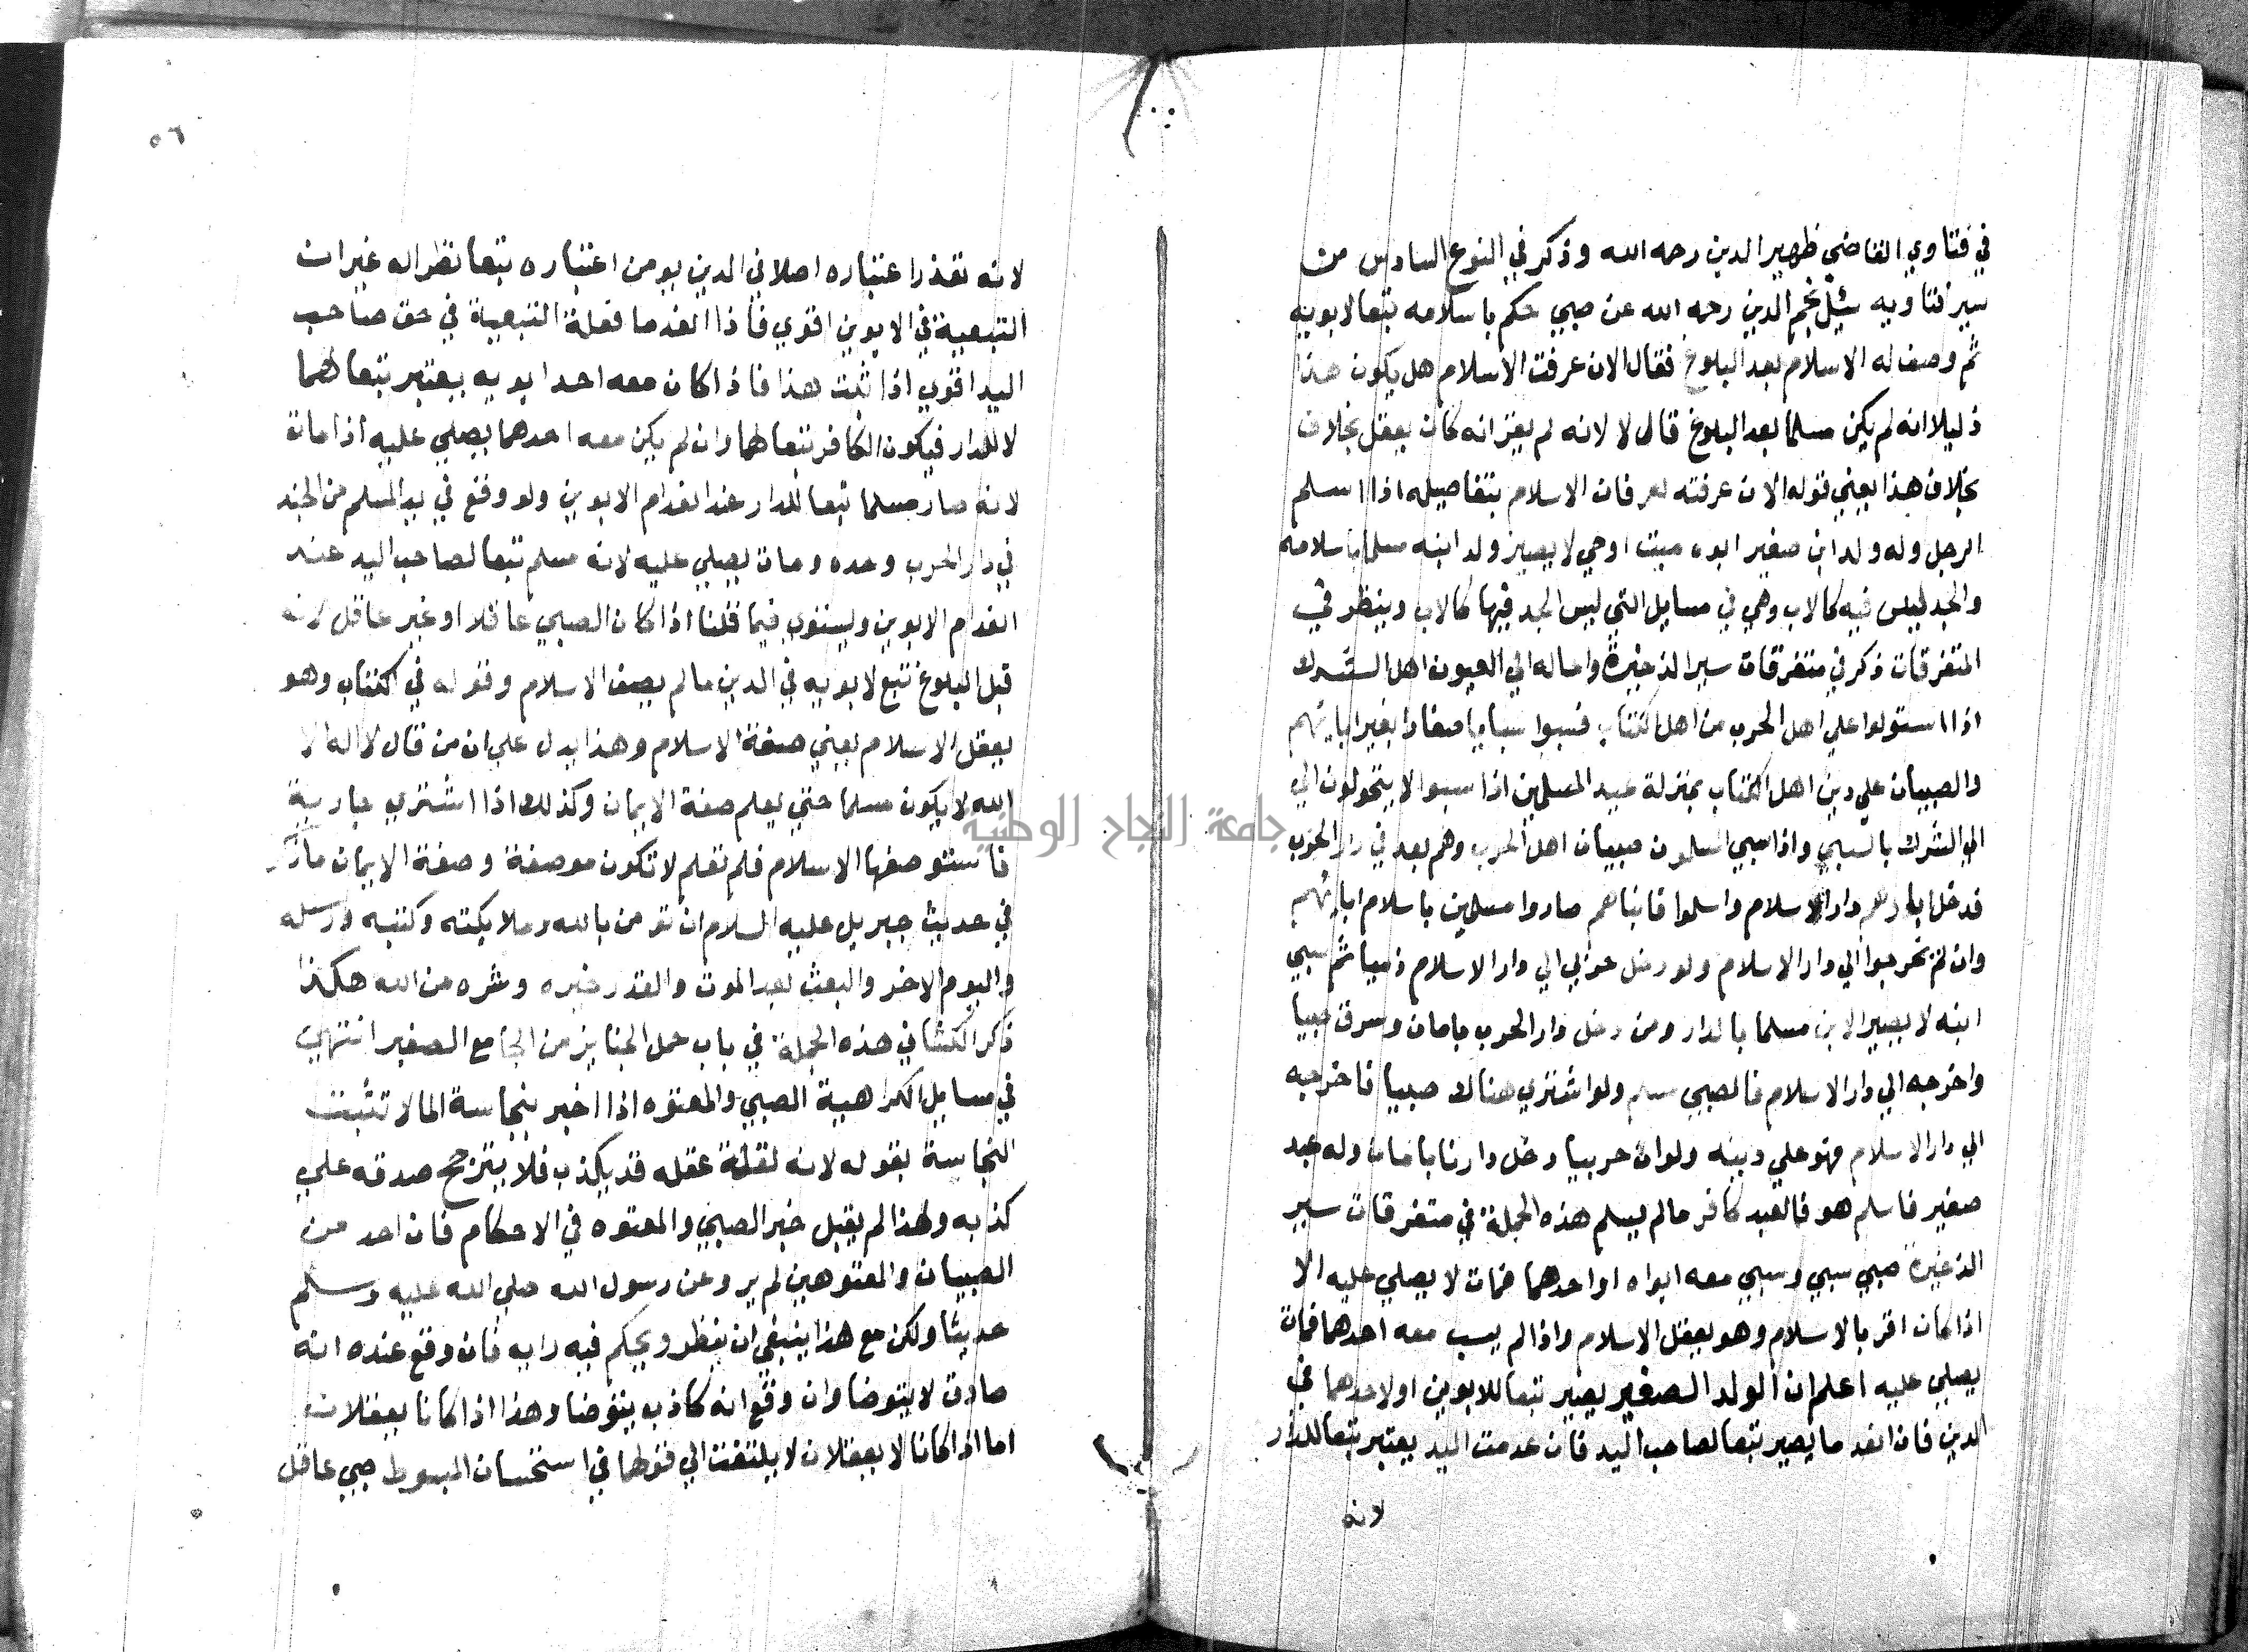 في فتاوي القاضي ظهير الدين رحمه الله وذكر في النوع السادس من
سير فتاويه سئل نجم الدين رحمه الله عن صبي حكم باسلامه تبعا لابويه
ثم وصف له الاسلام بعد البلوغ فقال الان عرفت الاسلام هل يكون هذا
دليلا انه لم يكن مسلما بعد البلوغ قال لا لانه لم يقر انه كان يعقل بخلاف
بخلاف هذا يعني قوله الان عرفته لعرفان الاسلام بتفاصيله اذا اسلم
الرجل وله ولد ابن صغير ابوه ميت او حي لا يصير ولد ابنه مسلما باسلامه
والجد ليس فيه كالاب وهي في مسايل التي ليس الجد فيها كالاب وينظر في
المتفرقات ذكر في متفرقات سير الذخيرة واحاله الي العيون اهل الشرك
اذا استولوا علي اهل الحرب من اهل الكتاب فسبوا سبايا صغارا بغير ابايهم
والصبيان علي دين اهل الكتاب بمنزلة عبيد المسلمين اذا سبوا لا يتحولون الي
الي الشرك بالسبي واذا سبي المسلمون صبيان اهل الحرب وهم بعد في دار الحرب
فدخل اباوهم دار الاسلام واسلموا فابناهم صاروا مسلمين باسلام ابايهم
وان لم يخرجوا الي دار الاسلام ولو دخل حربي الي دار الاسلام ذميا ثم سبي
ابنه لا يصير الابن مسلما بالدار ومن دخل دار الحرب بامان وسرق صبيا
واخرجه الي دار الاسلام فالصبي مسلم ولو اشتري هناك صبيا فاخرجه
الي دار الاسلام فهو علي دينه ولو ان حربيا دخل دارنا بامان وله عبد
صغير فاسلم هو فالعبد كافر ما لم يسلم هذه الجملة في متفرقات سير
الذخيرة صبي سبي وسبي معه ابواه او احدهما فمات لا يصلي عليه الا
اذا كان اقر بالاسلام وهو يعقل الاسلام واذا لم يسب معه احدهما فمات
يصلي عليه اعلم ان الولد الصغير يصير تبعا للابوين او لاحدهما في
الدين فان انعدما يصير تبعا لصاحب اليد فان عدمت اليد يعتبر تبعا للدار
لانه
٥٦
لانه تعذر اعتباره اصلا في الدين يومن اعتباره تبعا نظرا له غير ان
التبعية في الابوين اقوي فاذا انعدما فعلة التبعية في حق صاحب
اليد اقوي اذا ثبت هذا فاذا كان معه احد ابويه يعتبر تبعا لهما
لا للدار فيكون الكافر تبعا لهما وان لم يكن معه احدهما يصلي عليه اذا مات
لانه صار مسلما تبعا للدار عند انعدام الابوين ولو وقع في يد المسلم من الجند
في دار الحرب وحده ومات يصلي عليه لانه مسلم تبعا لصاحب اليد عند
انعدام الابوين ويستوي فيما قلنا اذا كان الصبي عاقلا او غير عاقل لانه
قبل البلوغ تبع لابويه في الدين ما لم يصف الاسلام وقوله في الكتاب وهو
يعقل الاسلام يعني صفة الاسلام وهذا يدل علي ان من قال لا اله الا
الله لا يكون مسلما حتي يعلم صفة الايمان وكذلك اذا اشتري جارية
فاستوصفها الاسلام فلم تعلم لا تكون موصفة وصفة الايمان ما ذكر
في حديث جبريل عليه السلام ان تومن بالله وملايكته وكتبه ورسله
واليوم الاخر والبعث بعد الموت والقدر خيره وشره من الله هكذا
ذكر الكشاني هذه الجملة في باب حمل الجنايز من الجامع الصغير انتهي
في مسايل الكراهية الصبي والمعتوه اذا اخبر بنجاسة الما لا تثبت
النجاسة بقوله لانه لقلة عقله قد يكذب فلا يترجح صدقه علي
كذبه ولهذا لم يقبل خبر الصبي والمعتوه في الاحكام فان احد من
الصبيان والمعتوهين لم يرو عن رسول الله صلي الله عليه وسلم
حديثا ولكن مع هذا ينبغي ان ينظر ويحكم فيه رايه فان وقع عنده انه
صادق لا يتوضا وان وقع انه كاذب يتوضا وهذا اذا كانا يعقلان
اما اذا كانا لا يعقلان لا يلتفت الي قولهما في استحسان المبسوط صبي عاقل
جامعة النجاح الوطنية